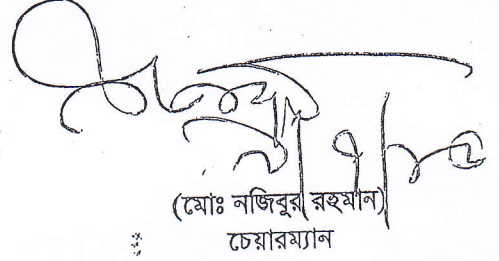 (মোঃ নজিবুর রহমান)
চেয়ারম্যান